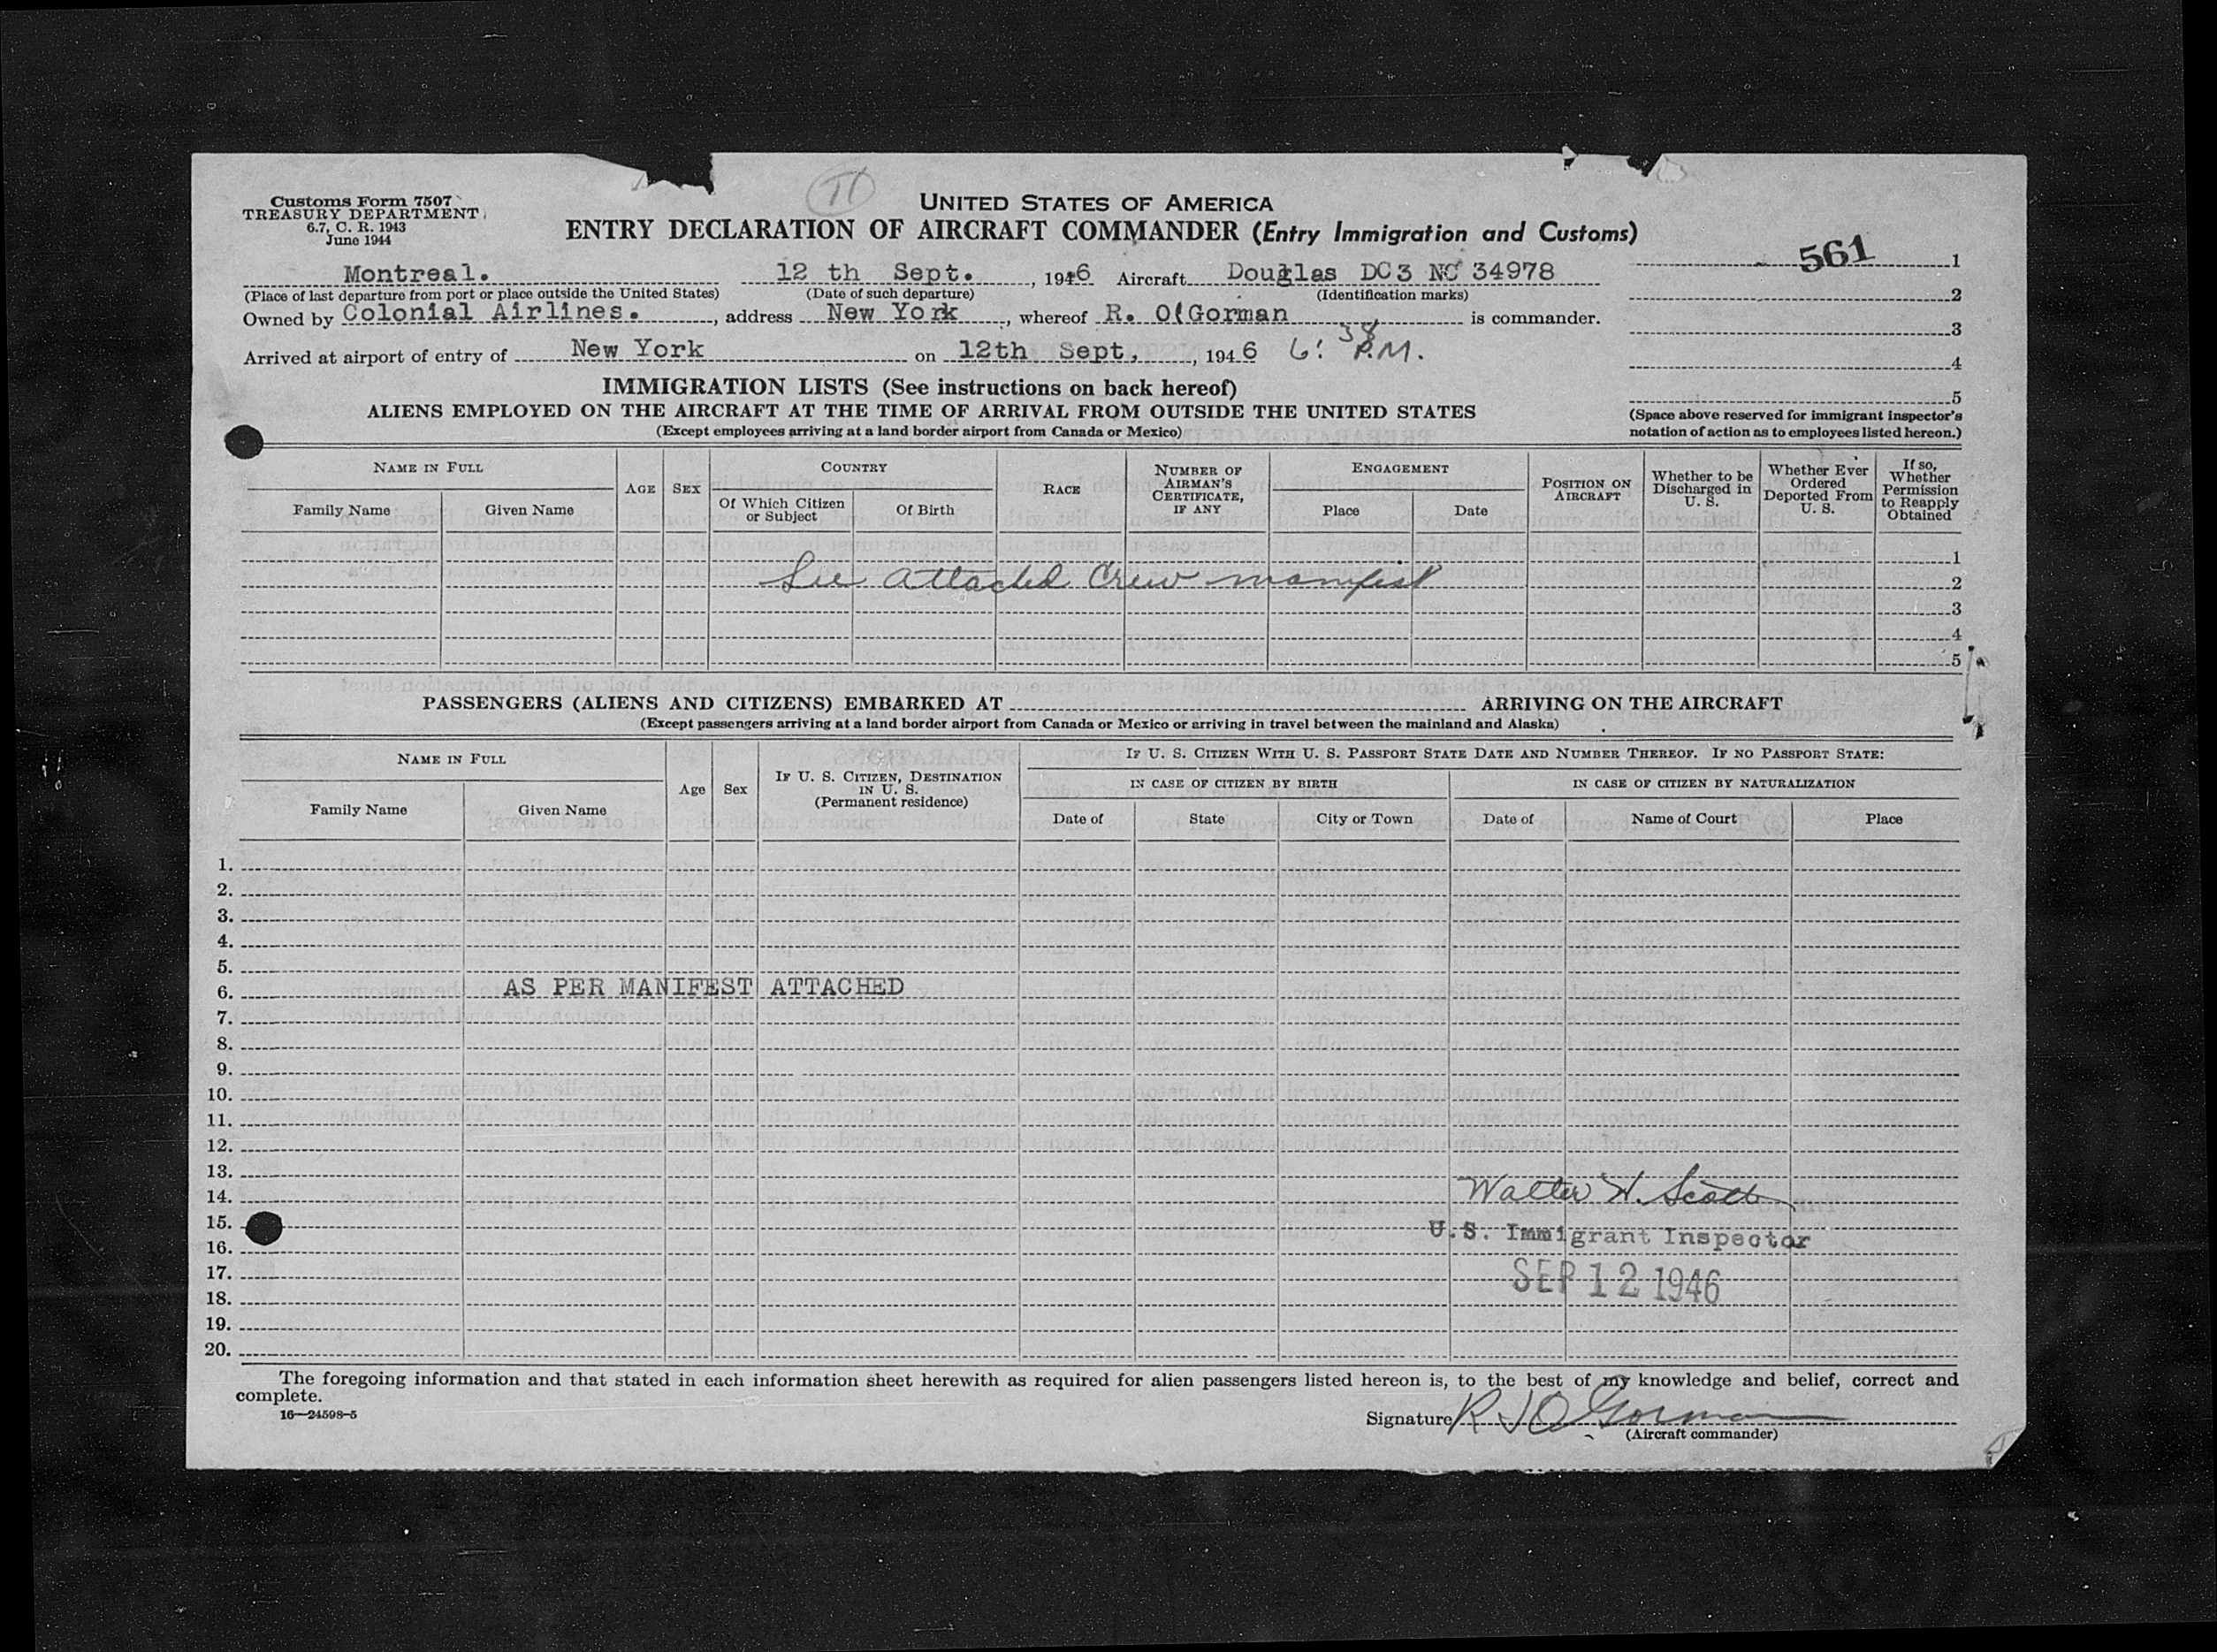 Customs Form 7507
TREASURY DEPARTMENT
6.7, C. R. 1943
June 1944
UNITED STATES OF AMERICA
ENTRY DECLARATION OF AIRCRAFT COMMANDER (Entry Immigration and Customs)
561
Montreal. 12 th Sept. , 1946 Aircraft Douglas DC3 NC 34978
(Place of last departure from port or place outside the United States) (Date of such departure) (Identification marks)
Owned by Colonial Airlines. , address New York , whereof R. O'Gorman is commander.
Arrived at airport of entry of New York on 12th Sept. , 1946 6:38 P.M.
1
2
3
4
5
(Space above reserved for immigrant inspector's
notation of action as to employees listed hereon.)
IMMIGRATION LISTS (See instructions on back hereof)
ALIENS EMPLOYED ON THE AIRCRAFT AT THE TIME OF ARRIVAL FROM OUTSIDE THE UNITED STATES
(Except employees arriving at a land border airport from Canada or Mexico)
NAME IN FULL
Family Name Given Name
AGE
SEX
COUNTRY
Of Which Citizen or Subject
Of Birth
RACE
NUMBER OF AIRMAN'S CERTIFICATE, IF ANY
ENGAGEMENT
Place Date
POSITION ON AIRCRAFT
Whether to be Discharged in U. S.
Whether Ever Ordered Deported From U. S.
If so, Whether Permission to Reapply Obtained
1
See attached Crew manifest 2
3
4
5
PASSENGERS (ALIENS AND CITIZENS) EMBARKED AT ARRIVING ON THE AIRCRAFT
(Except passengers arriving at a land border airport from Canada or Mexico or arriving in travel between the mainland and Alaska)
NAME IN FULL
Family Name Given Name
Age
Sex
IF U. S. CITIZEN, DESTINATION IN U. S.
(Permanent residence)
IF U. S. CITIZEN WITH U. S. PASSPORT STATE DATE AND NUMBER THEREOF. IF NO PASSPORT STATE:
IN CASE OF CITIZEN BY BIRTH IN CASE OF CITIZEN BY NATURALIZATION
Date of State City or Town Date of Name of Court Place
1.
2.
3.
4.
5.
6. AS PER MANIFEST ATTACHED
7.
8.
9.
10.
11.
12.
13.
14. Walter W. Scott
15. U.S. Immigrant Inspector
16.
17. SEP 12 1946
18.
19.
20.
The foregoing information and that stated in each information sheet herewith as required for alien passengers listed hereon is, to the best of my knowledge and belief, correct and
complete.
16—24598-5
Signature R J O'Gorman
(Aircraft commander)